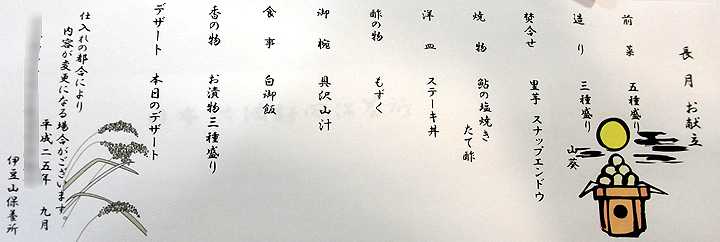 長月 お献立
前菜 五種盛り
造り 三種盛り 山葵
焚合せ 里芋 スナップエンドウ
焼物 鮎の塩焼き
たで酢
洋皿 ステーキ丼
酢の物 もずく
御椀 具沢山汁
食事 白御飯
香の物 お漬物三種盛り
デザート 本日のデザート
仕入れの都合により
内容が変更になる場合がございます。
平成二五年 九月
伊豆山保養所